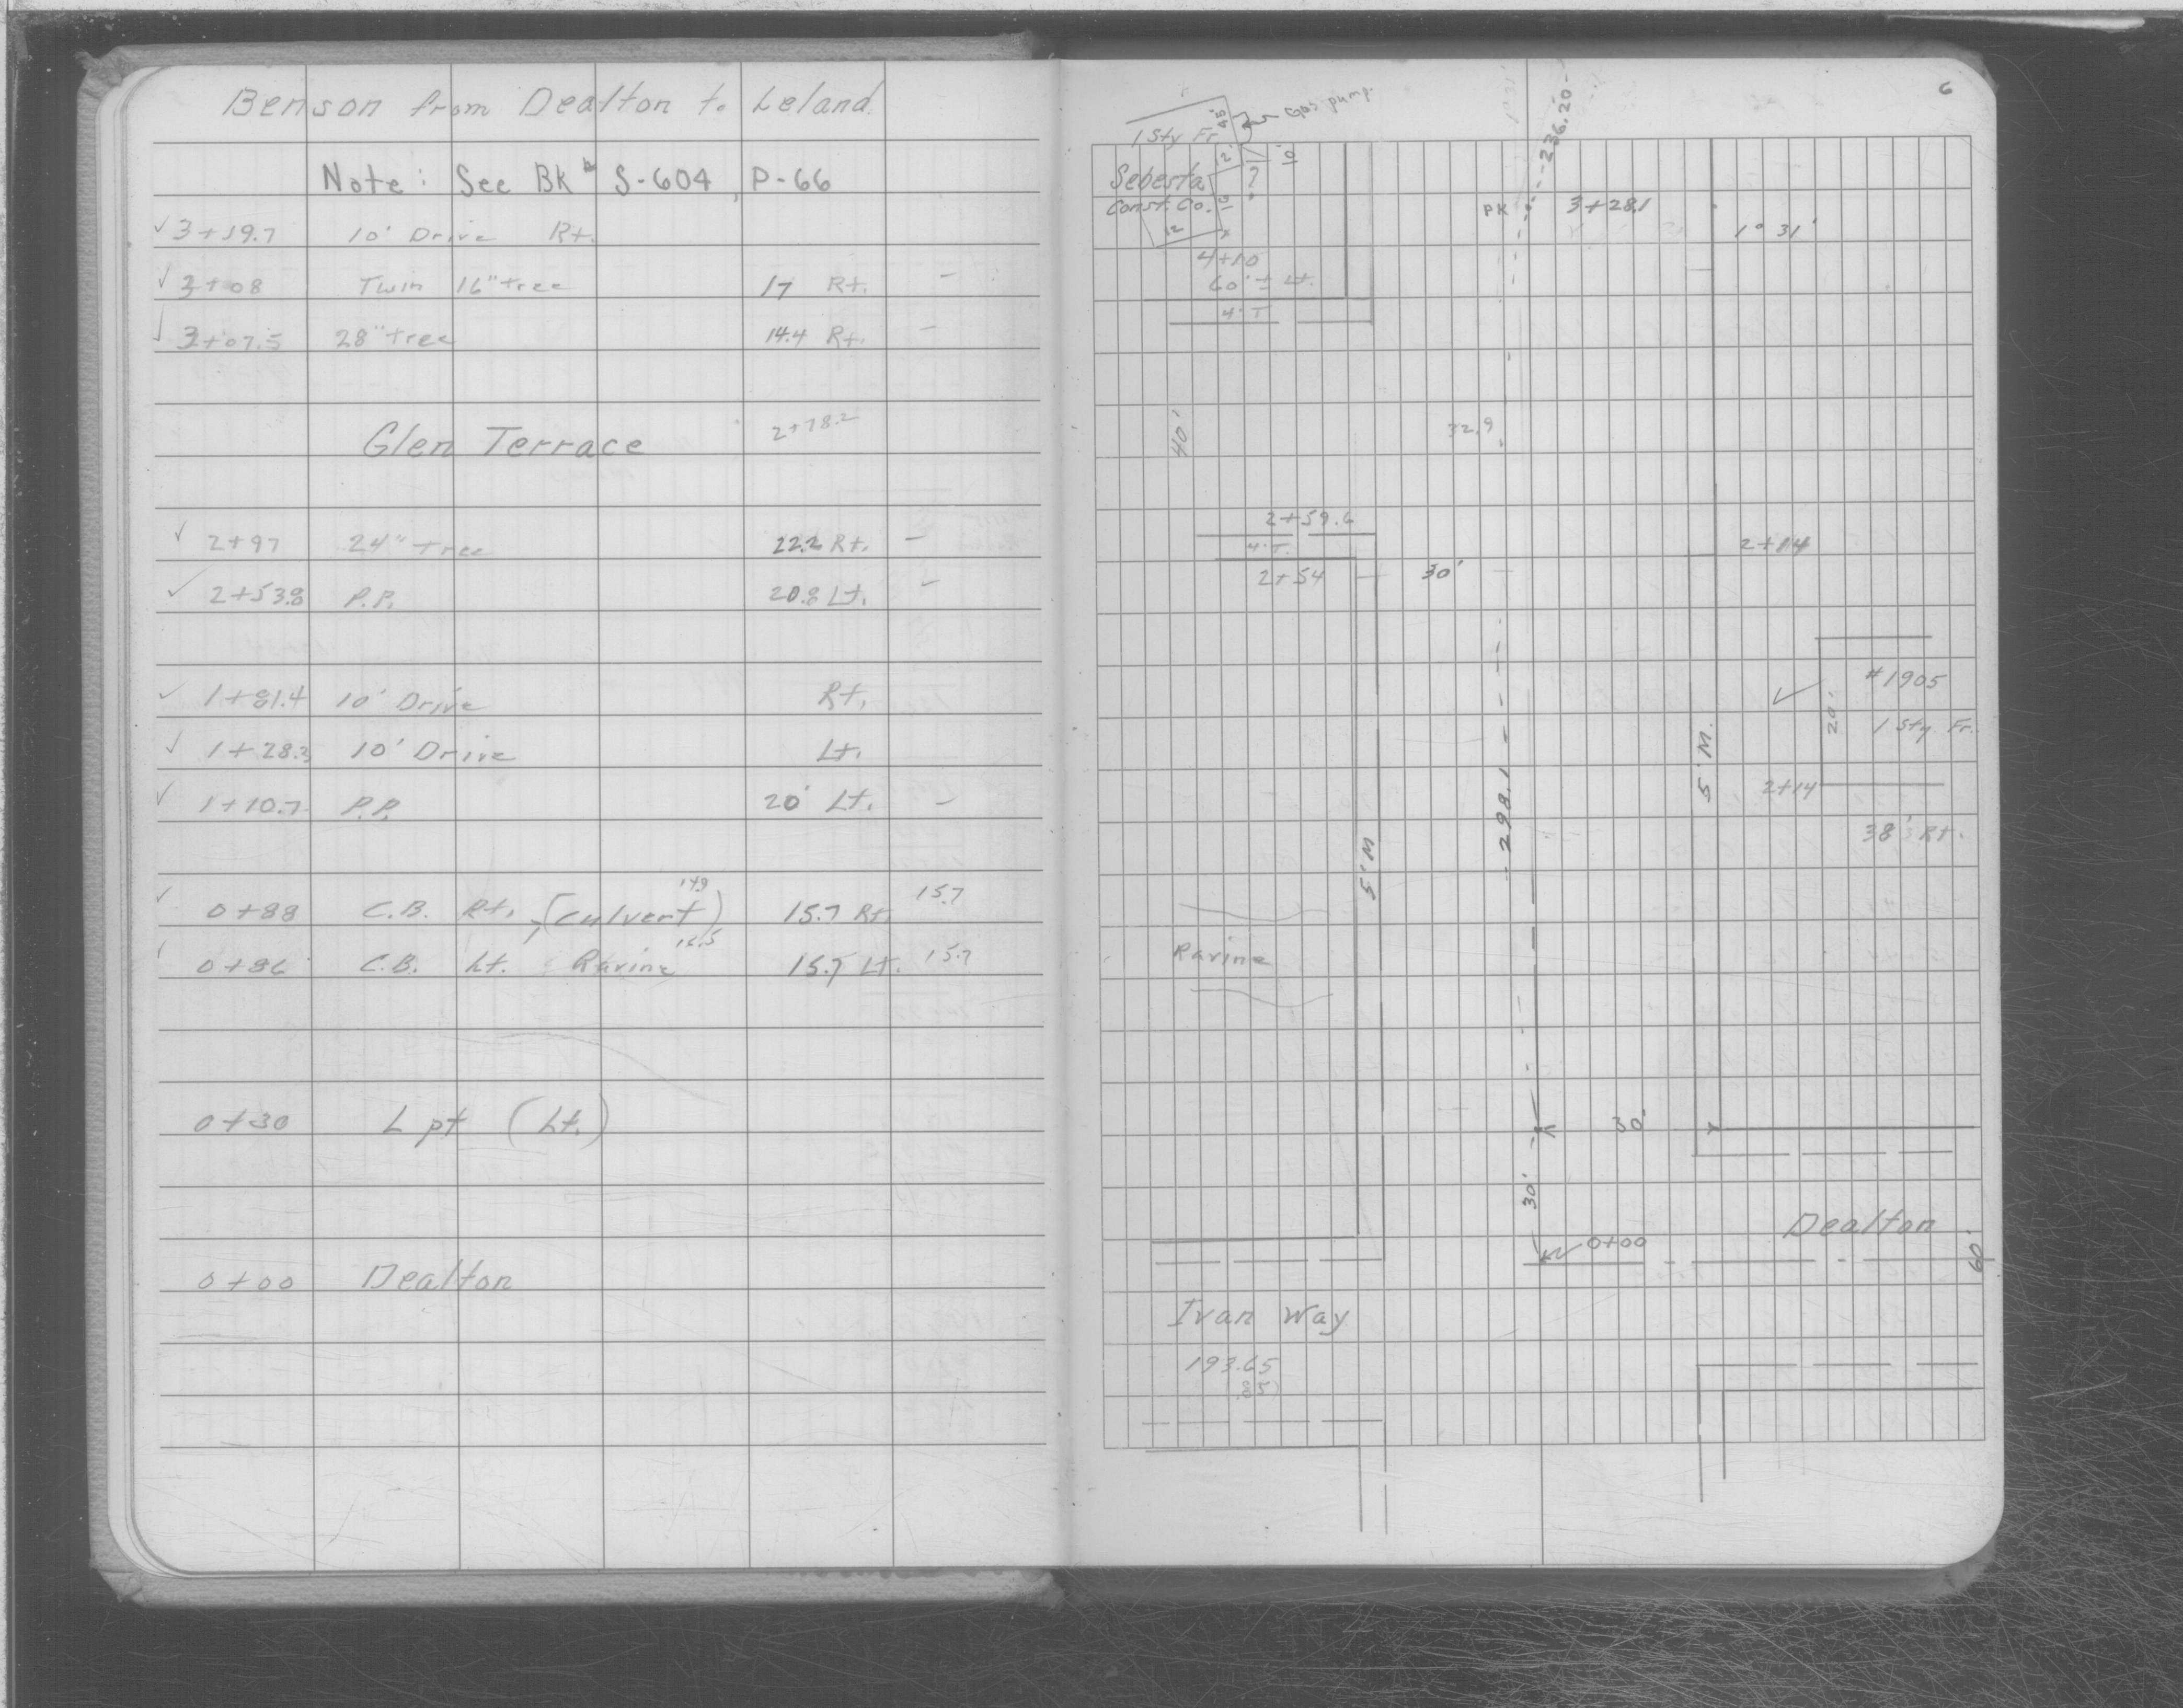 Benson from Dealton to Leland.
Note: See Bk# S-604, P-66
✓ 3+19.7 10' Drive Rt.
✓ 3+08 Twin 16" tree 17 Rt. -
✓ 3+07.5 28" tree 14.4 Rt. -
Glen Terrace 2+78.2
✓ 2+97 24" tree 22.2 Rt. -
✓ 2+53.8 P.P. 20.8 Lt. -
✓ 1+81.4 10' Drive Rt.
✓ 1+28.3 10' Drive Lt.
✓ 1+10.7 P.P. 20' Lt. -
14.9
✓ 0+88 C.B. Rt., (Culvert) 15.7 Rt. 15.7
0+86 C.B. Lt. Ravine 15.7 Lt. 15.7
0+30 L pt (Lt.)
0+00 Dealton
6
Gas pump.
1 Sty Fr. 45'
236.20
12' 10
Sebesta ?
Const. Co.
PK 3+28.1
12
1° 31'
4+10
60' ± Lt.
4' T
40'
32.9
2+59.6
4' T.
2+54 30'
2+14
#1905
20' 1 Sty Fr.
298.1
5' M.
2+14
38' Rt.
5' M
Ravine
30'
30'
0+00
Dealton
60'
Ivan Way
193.65